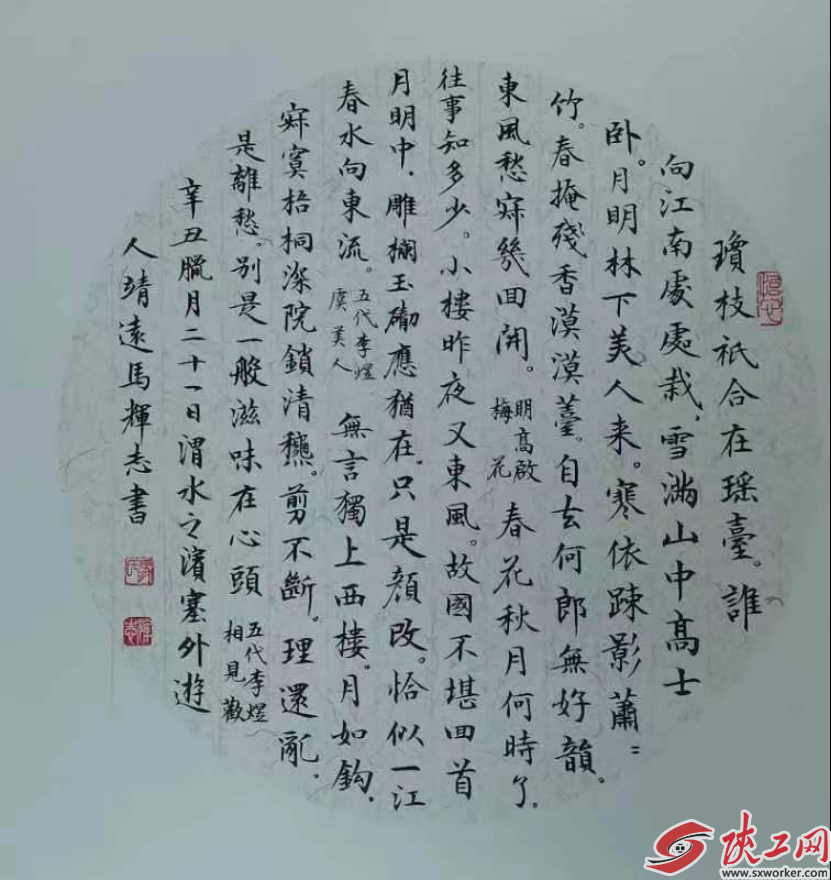 瓊枝祇合在瑶臺。誰
向江南處處栽，雪滿山中高士
卧。月明林下美人来。寒依踈影蕭〻
竹。春掩殘香漠漠薹。自去何郎無好韻。
東風愁寂幾回開。明高啟梅花 春花秋月何時了。
往事知多少。小樓昨夜又東風。故國不堪回首
月明中．雕欄玉砌應猶在．只是顔改。恰似一江
春水向東流。五代李煜虞美人 無言獨上西樓。月如鈎．
寂寞梧桐深院鎖清龝。剪不斷。理還亂。
是離愁。别是一般滋味在心頭 五代李煜相見歡
辛丑臘月二十一日渭水之濱塞外遊
人靖遠馬輝志書
陕工网
www.sxworker.com